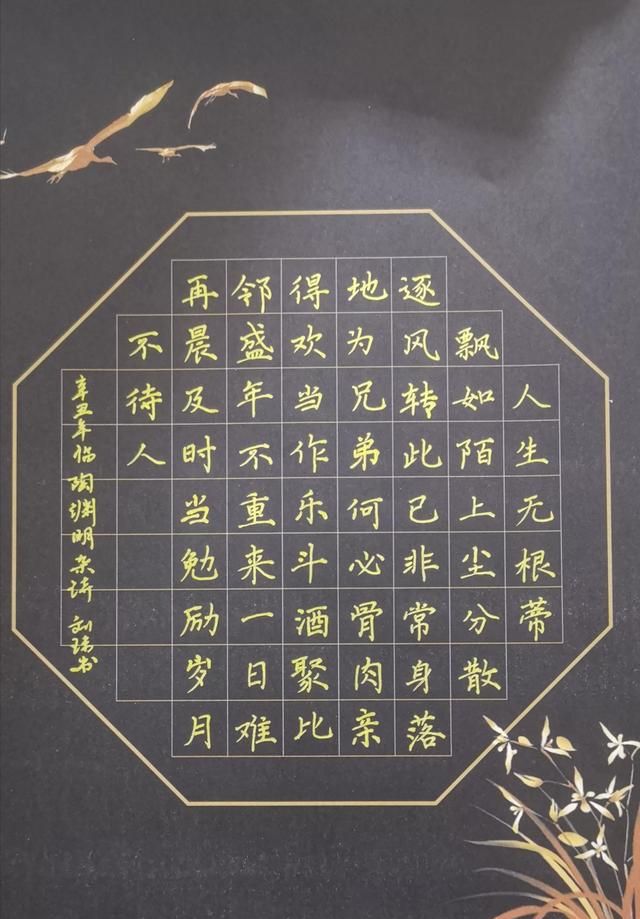 人生无根蒂
飘如陌上尘分散
逐风转此已非常身落
地为兄弟何必骨肉亲
得欢当作乐斗酒聚比
邻盛年不重来一日难
再晨及时当勉励岁月
不待人
辛丑年临陶渊明杂诗 刘书